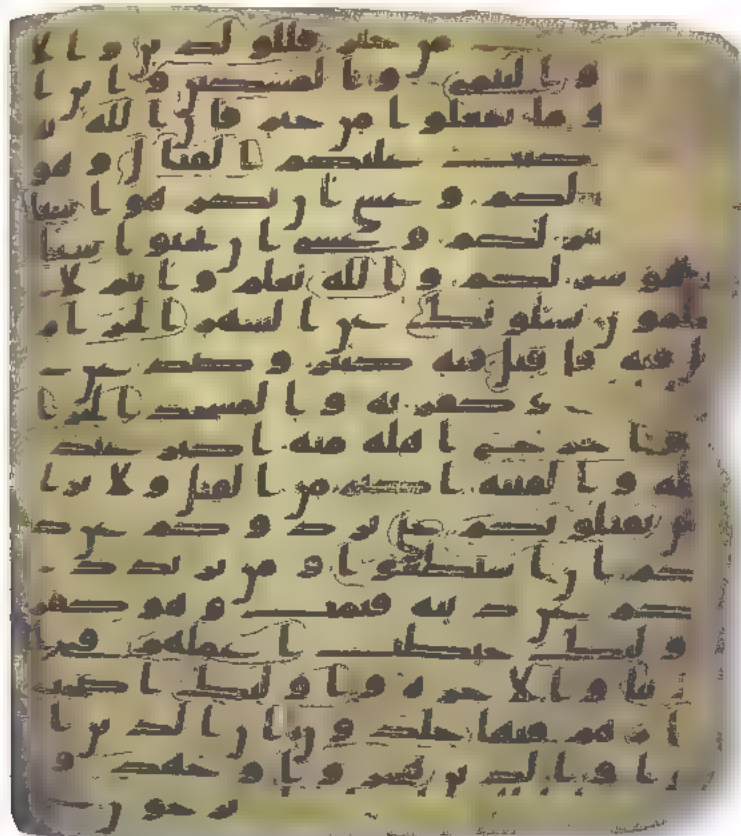 من خير فللولدين والا
واليتمى والمسكين وابن ا
وما تفعلوا من خير فان الله به
كتب عليكم القتال وهو
لكم وعسى ان تكرهوا شيا
خير لكم وعسى ان تحبوا شيا
وهو شر لكم والله يعلم وانتم لا
تعلمون يسلونك عن الشهر الحرام
قتل فيه قل قتل فيه كبير وصد عن
كفر به والمسجد الحرا
اخرج اهله منه اكبر عند
الله والفتنه اكبر من القتل ولا يزا
لون يقتلونكم حتى يردوكم عن د
ينكم ان استطعوا ومن يرتدد
منكم عن دينه فيمت وهو كفر
فاولئك حبطت اعملهم في الد
نيا والاخره واولئك اصحب
هم فيها خلدون ان الذين ا
منوا والذين هجروا وجهدوا
يرجون